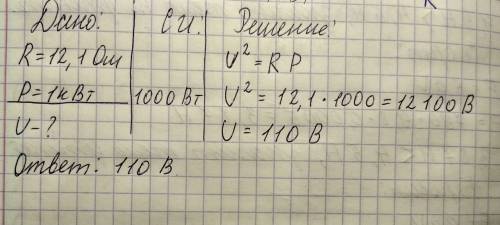 Дано: СИ: Решение:
R=12,1 Ом U² = R P
P=1кВт 1000 Вт U² = 12,1·1000 = 12100 В
U-? U = 110 В
Ответ: 110 В